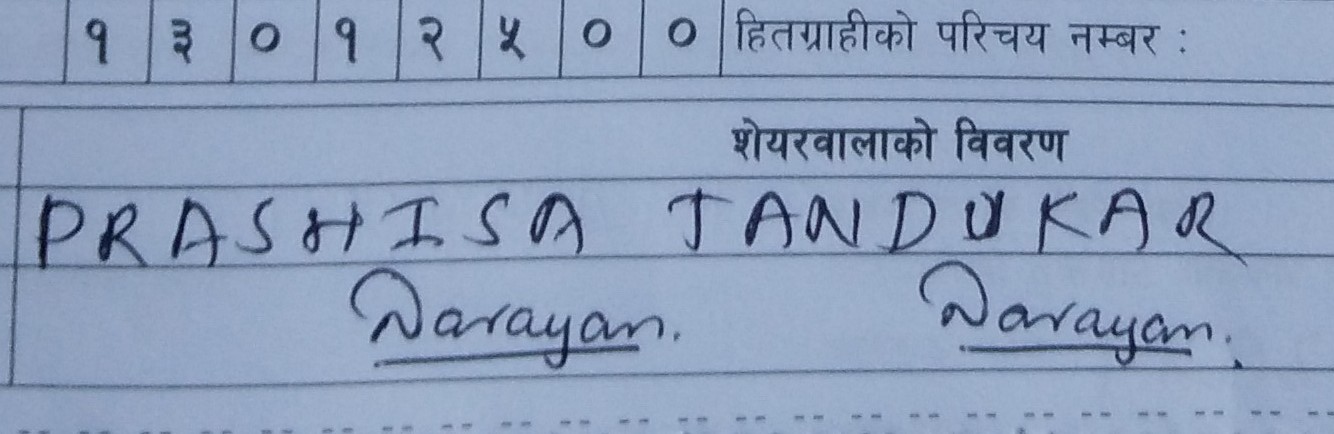 १ ३ ० १ २ ५ ० ० हितग्राहीको परिचय नम्बर :
शेयरवालाको विवरण
PRASHISA TANDUKAR
Narayan. Narayan.